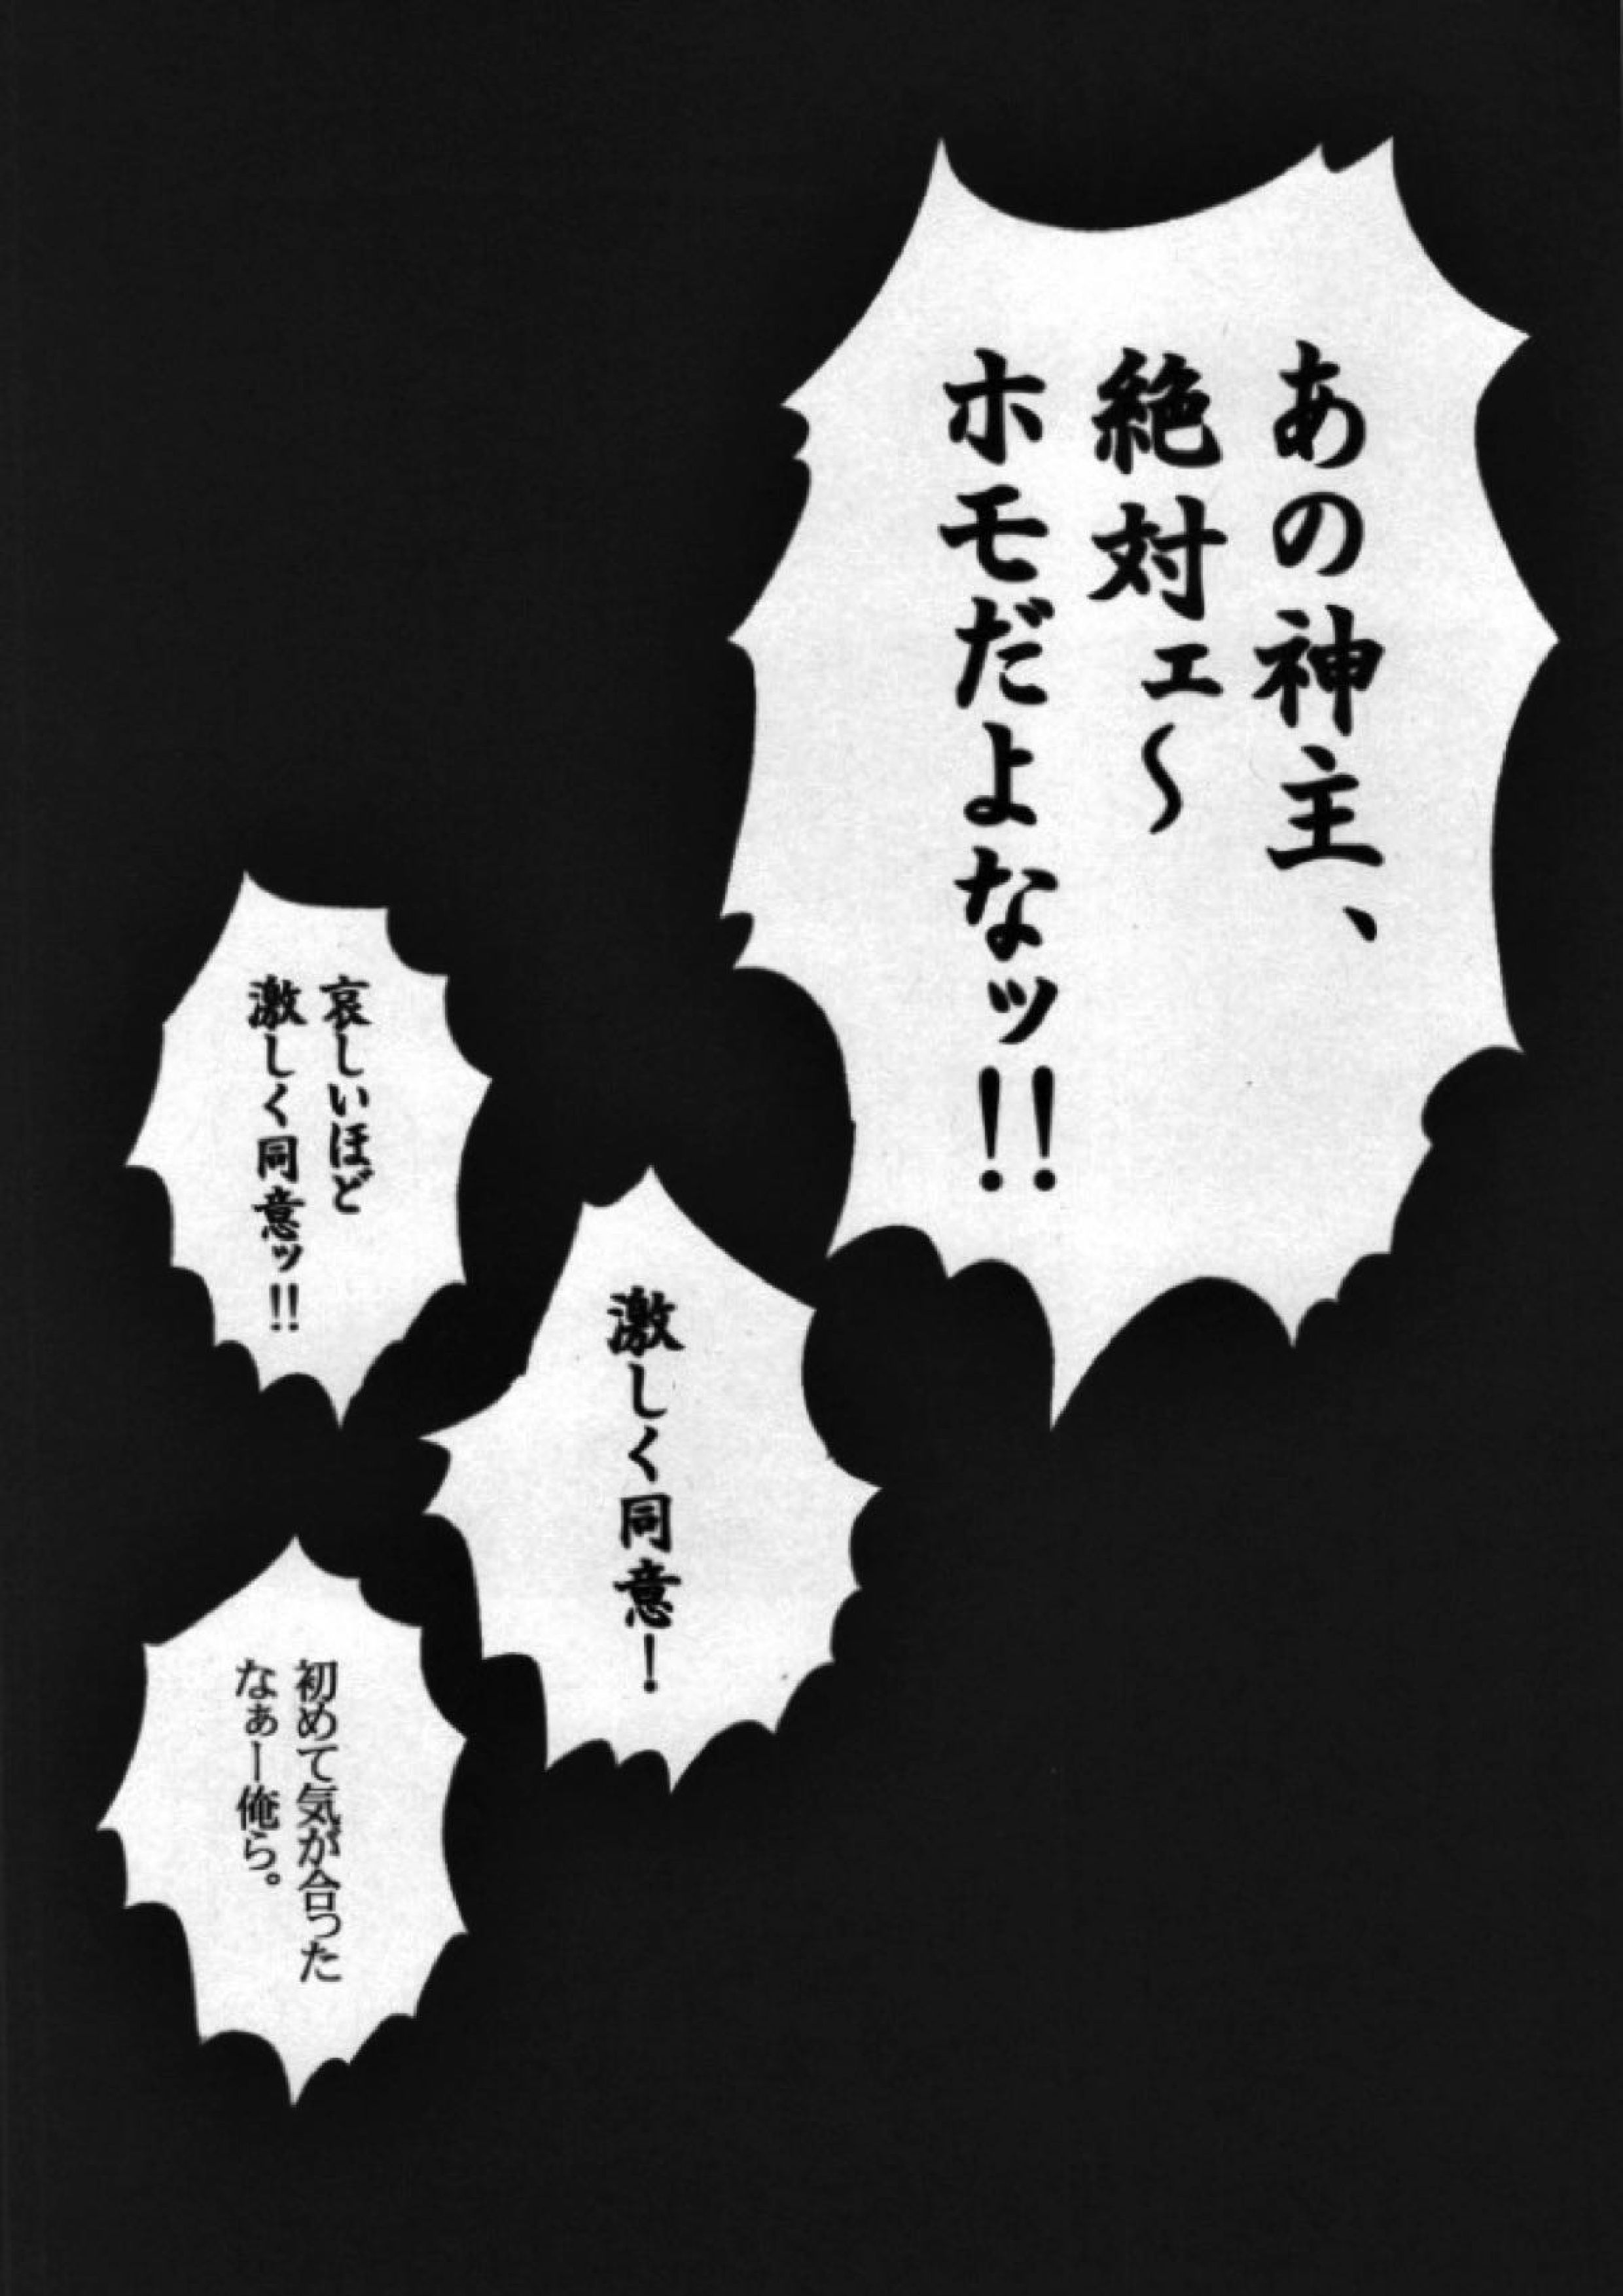 あの神主、
絶対ェ～
ホモだよなッ!!
激しく同意！
哀しいほど
激しく同意ッ!!
初めて気が合った
なぁー俺ら。